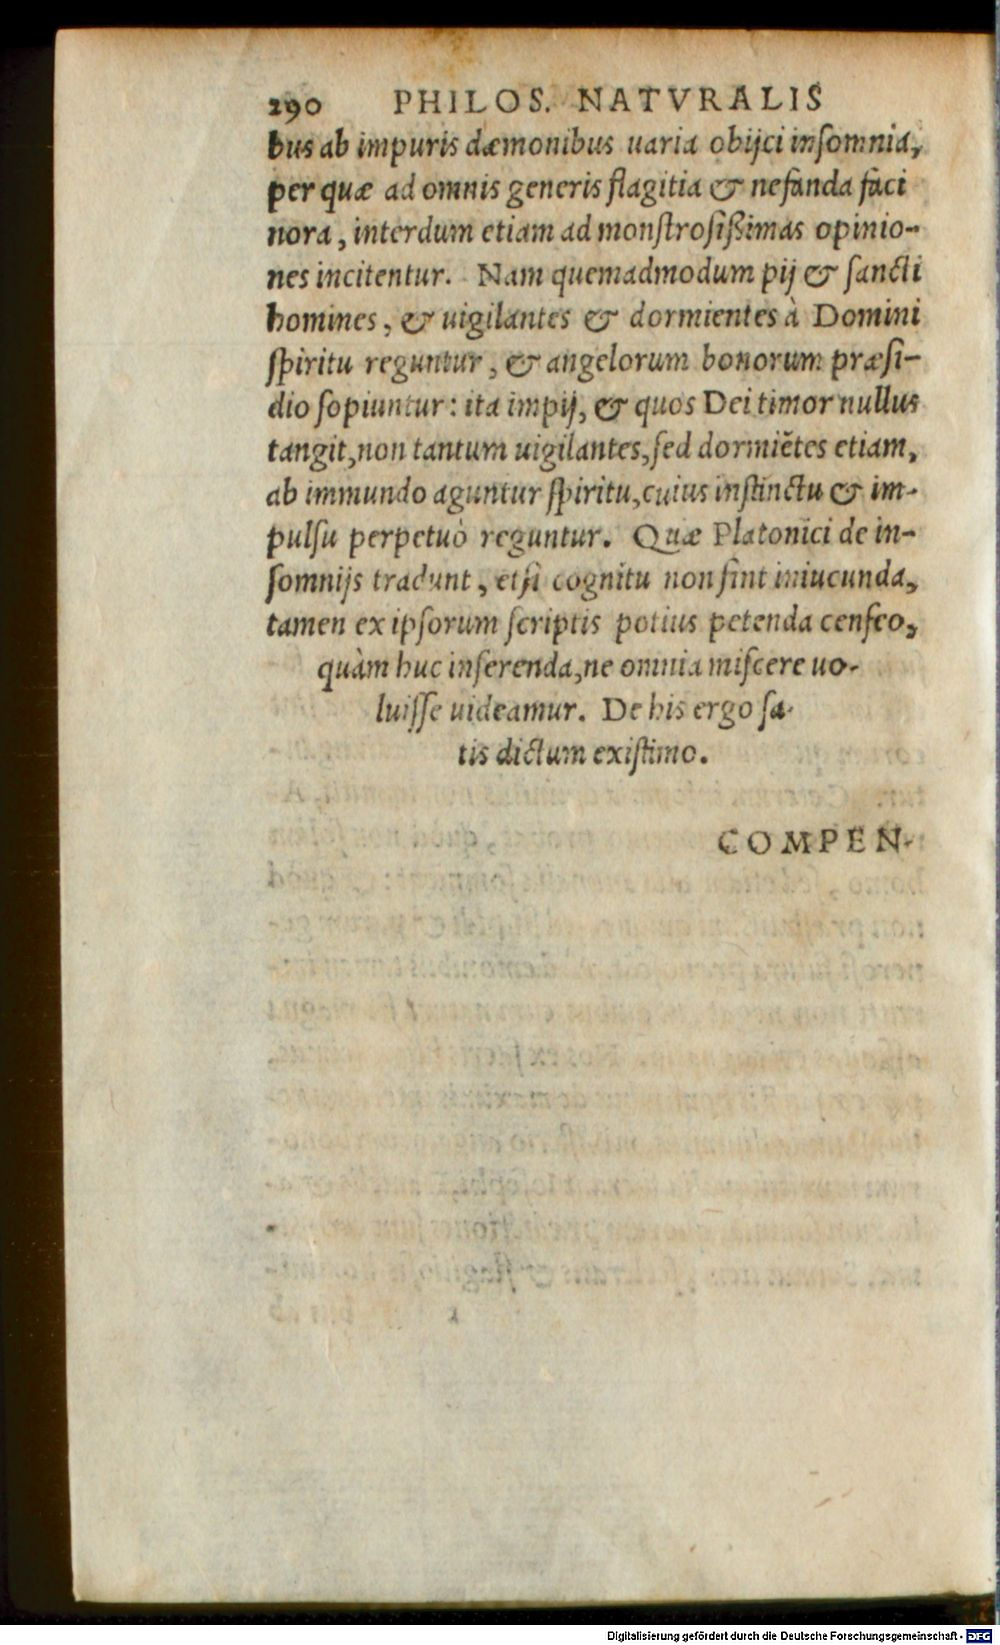 290 PHILOS. NATVRALIS
bus ab impuris dæmonibus uaria obijci inſomnia,
per quæ ad omnis generis flagitia & nefanda faci
nora, interdum etiam ad monſtroſißimas opinio-
nes incitentur. Nam quemadmodum pij & ſancti
homines, & uigilantes & dormientes à Domini
ſpiritu reguntur, & angelorum bonorum præſi-
dio ſopiuntur: ita impij, & quos Dei timor nullus
tangit, non tantum uigilantes, ſed dormiẽtes etiam,
ab immundo aguntur ſpiritu, cuius inſtinctu & im-
pulſu perpetuò reguntur. Quæ Platonici de in-
ſomnijs tradunt, etſi cognitu non ſint iniucunda,
tamen ex ipſorum ſcriptis potius petenda cenſeo,
quàm huc inſerenda, ne omnia miſcere uo-
luiſſe uideamur. De his ergo ſa-
tis dictum exiſtimo.
COMPEN-
Digitalisierung gefördert durch die Deutsche Forschungsgemeinschaft - DFG